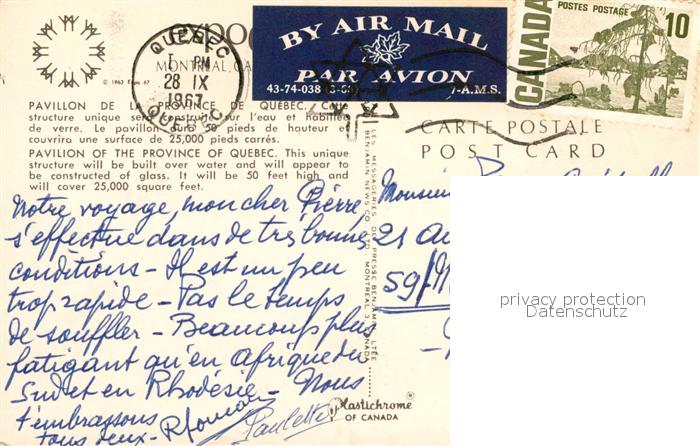 expo
MONTRÉAL, CA
© 1963 Expo 67
QUÉBEC
PM
28 IX
1967
QUÉBEC
BY AIR MAIL
PAR AVION
43-74-038 (3-63) 7-A.M.S.
POSTES POSTAGE
10
CANADA
PAVILLON DE LA PROVINCE DE QUÉBEC. Cette
structure unique sera construite sur l'eau et habillée
de verre. Le pavillon aura 50 pieds de hauteur et
couvrira une surface de 25,000 pieds carrés.
PAVILION OF THE PROVINCE OF QUEBEC. This unique
structure will be built over water and will appear
to be constructed of glass. It will be 50 feet high and
will cover 25,000 square feet.
CARTE POSTALE
POST CARD
Notre voyage, mon cher Pierre
s'effectue dans de très bonnes
conditions - Il est un peu
trop rapide - Pas le temps
de souffler - Beaucoup plus
fatigant qu'en Afrique du
Sud et en Rhodésie - Nous
t'embrassons
tous deux -
Paulette
LES MESSAGERIES DE PRESSE BENJAMIN LTÉE
BENJAMIN NEWS CO. LTD. MONTREAL 3, CANADA
Plastichrome
OF CANADA
Monsieur
21
59/
privacy protection
Datenschutz